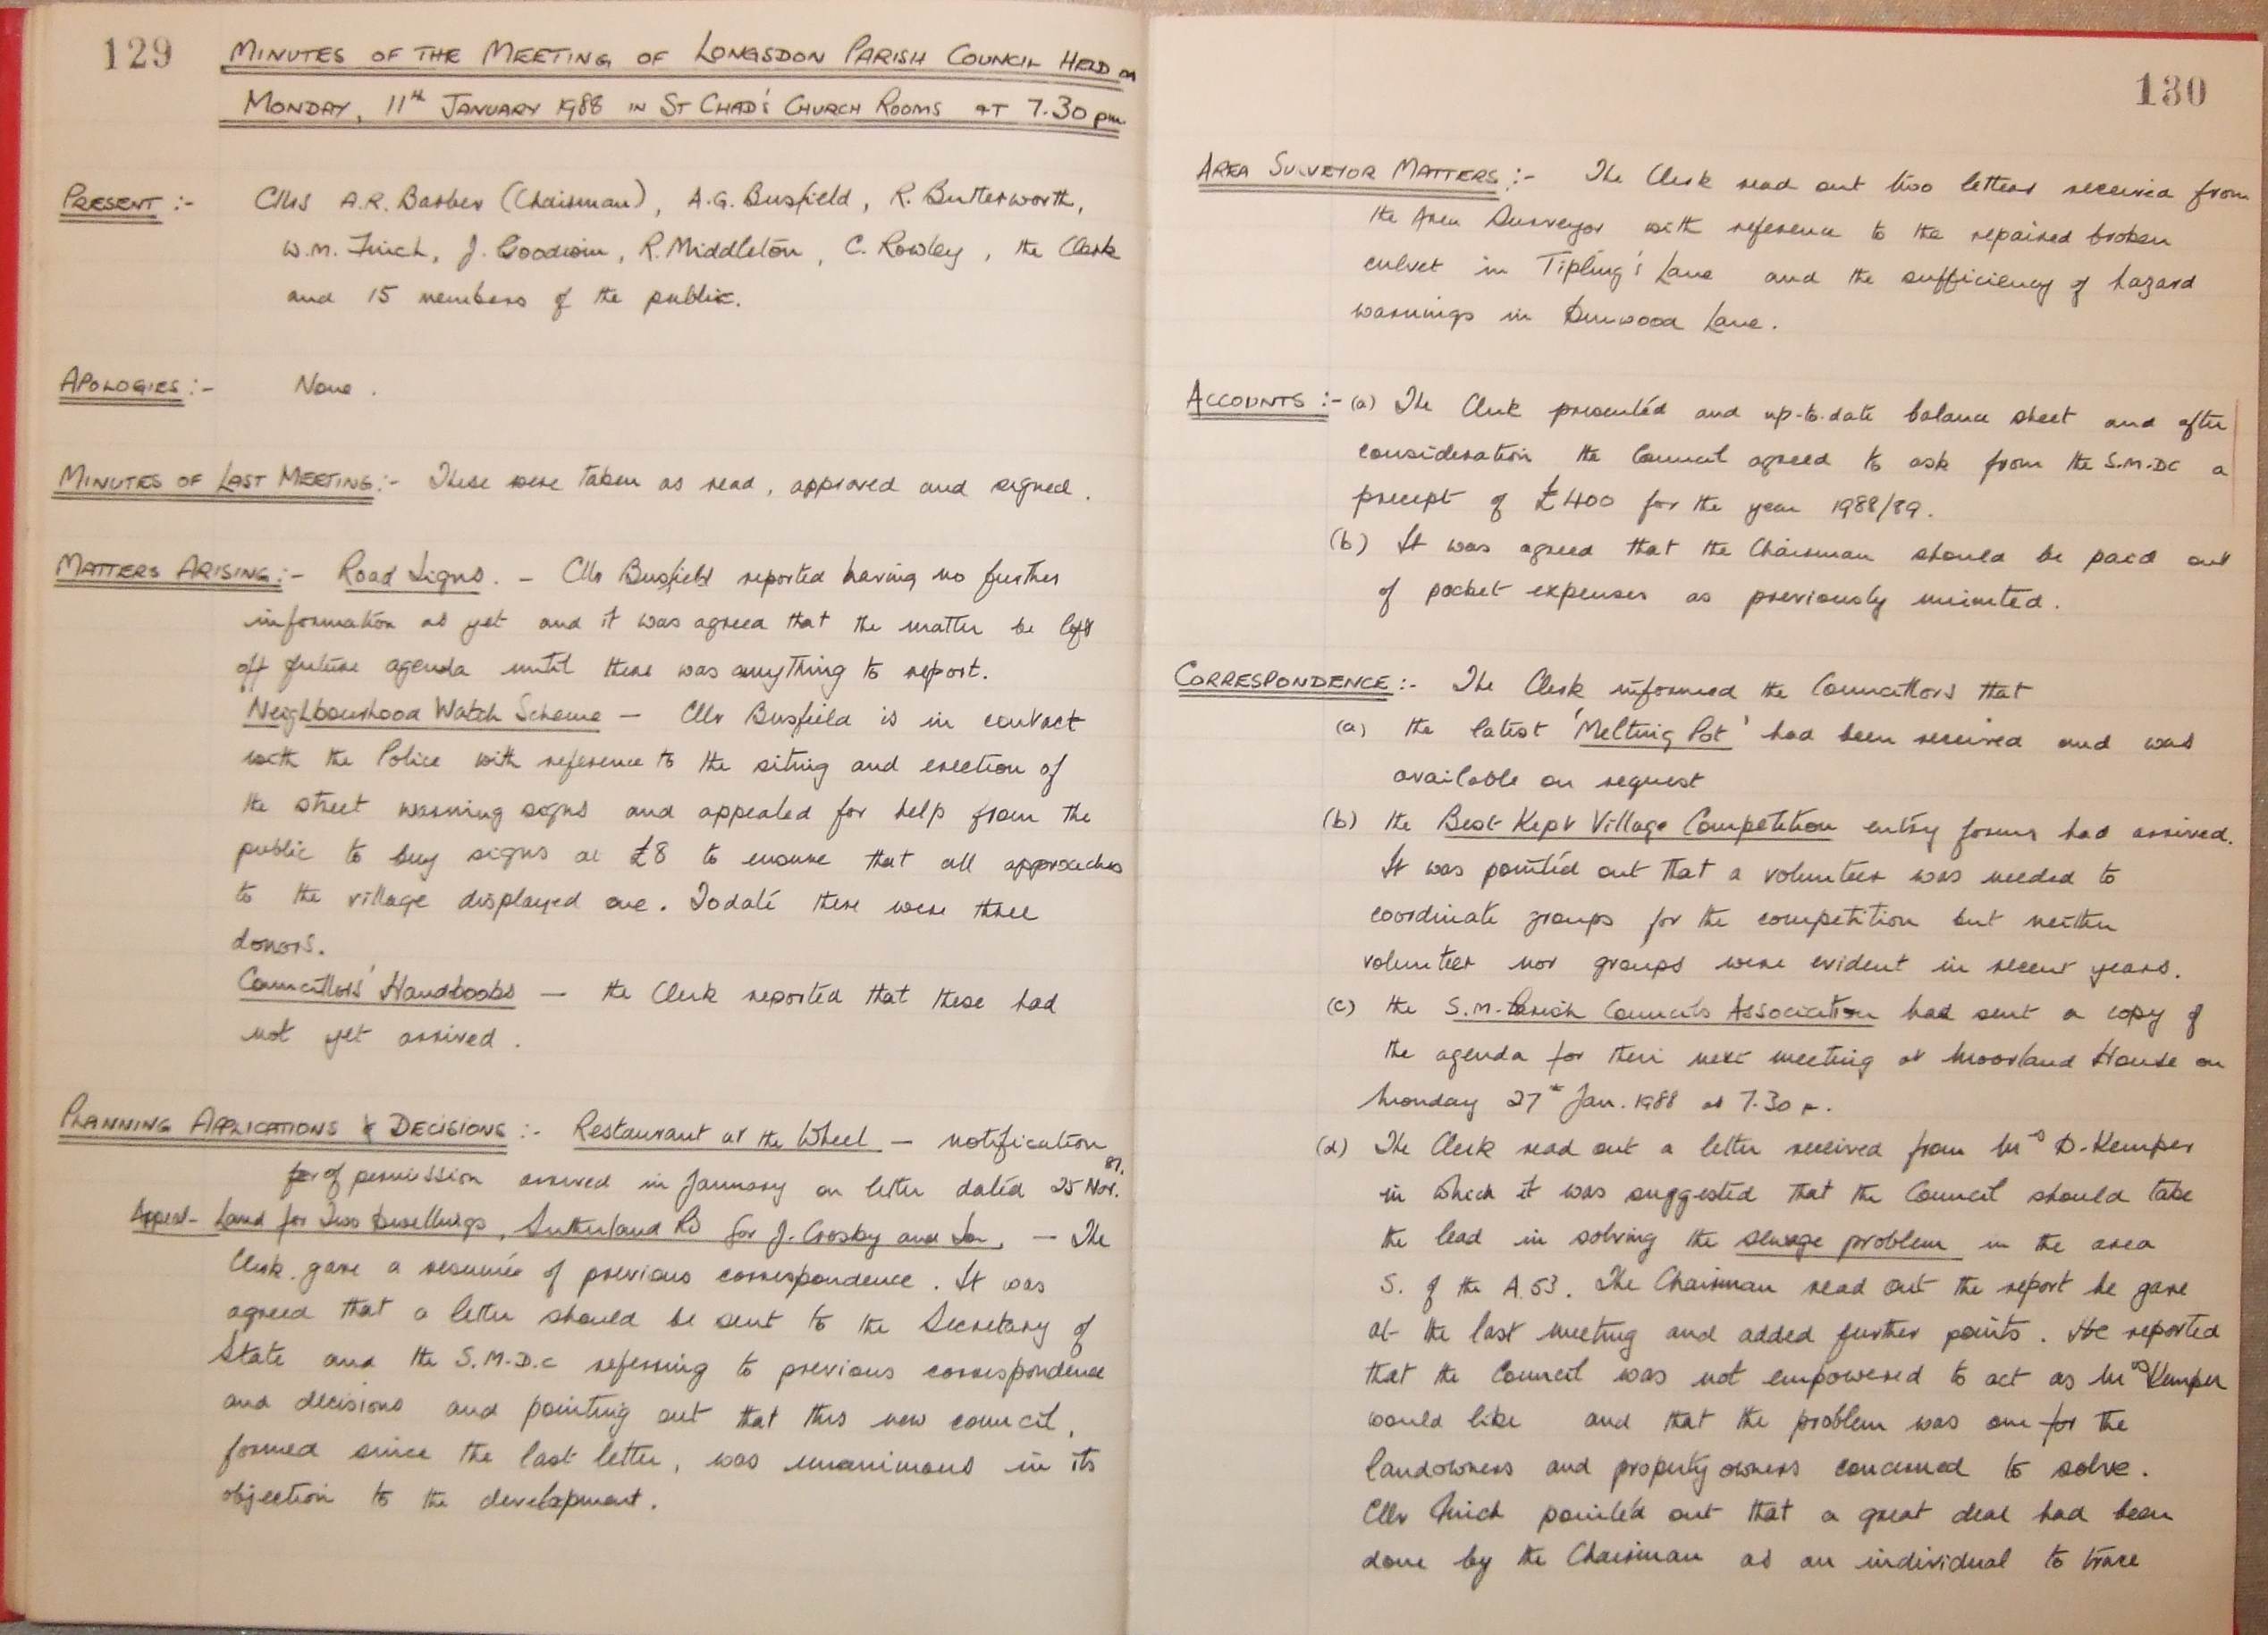 129
MINUTES OF THE MEETING OF LONGSDON PARISH COUNCIL HELD on
MONDAY, 11th JANUARY 1988 IN ST CHAD'S CHURCH ROOMS AT 7.30 pm.
PRESENT :- Cllrs A.R. Barber (Chairman), A.G. Busfield, R. Butterworth,
W.M. Finch, J. Goodwin, R. Middleton, C. Rowley, the Clerk
and 15 members of the public.
APOLOGIES :- None.
MINUTES OF LAST MEETING :- These were taken as read, approved and signed.
MATTERS ARISING :- Road Signs. - Cllr Busfield reported having no further
information as yet and it was agreed that the matter be left
off future agenda until there was anything to report.
Neighbourhood Watch Scheme - Cllr Busfield is in contact
with the Police with reference to the siting and erection of
the street warning signs and appealed for help from the
public to buy signs at £8 to ensure that all approaches
to the village displayed one. Todate there were three
donors.
Councillors' Handbooks - the Clerk reported that these had
not yet arrived.
PLANNING APPLICATIONS & DECISIONS :- Restaurant at the Wheel - notification
for of permission arrived in January on letter dated 25 Nov. 87.
Appeal - Land for Two Dwellings, Sutherland Rd for J. Crosby and Son, - The
Clerk gave a resumée of previous correspondence. It was
agreed that a letter should be sent to the Secretary of
State and the S.M.D.C referring to previous correspondence
and decisions and pointing out that this new council,
formed since the last letter, was unanimous in its
objection to the development.
130
AREA SURVEYOR MATTERS :- The Clerk read out two letters received from
the Area Surveyor with reference to the repaired broken
culvet in Tipling's Lane and the sufficiency of hazard
warnings in Dunwood Lane.
ACCOUNTS :- (a) The Clerk presented and up-to-date balance sheet and after
consideration the Council agreed to ask from the S.M.DC a
precept of £400 for the year 1988/89.
(b) It was agreed that the Chairman should be paid out
of pocket expenses as previously minuted.
CORRESPONDENCE :- The Clerk informed the Councillors that
(a) the latest 'Melting Pot' had been received and was
available on request
(b) the Best Kept Village Competition entry forms had arrived.
It was pointed out that a volunteer was needed to
coordinate groups for the competition but neither
volunteer nor groups were evident in recent years.
(c) the S.M. Parish Councils Association had sent a copy of
the agenda for their next meeting at Moorland House on
Monday 27th Jan. 1988 at 7.30 p.
(d) The Clerk read out a letter received from Mrs D. Kemper
in which it was suggested that the Council should take
the lead in solving the sewage problem in the area
S. of the A.53. The Chairman read out the report he gave
at the last meeting and added further points. He reported
that the Council was not empowered to act as Mrs Kemper
would like and that the problem was one for the
landowners and property owners concerned to solve.
Cllr Finch pointed out that a great deal had been
done by the Chairman as an individual to trace